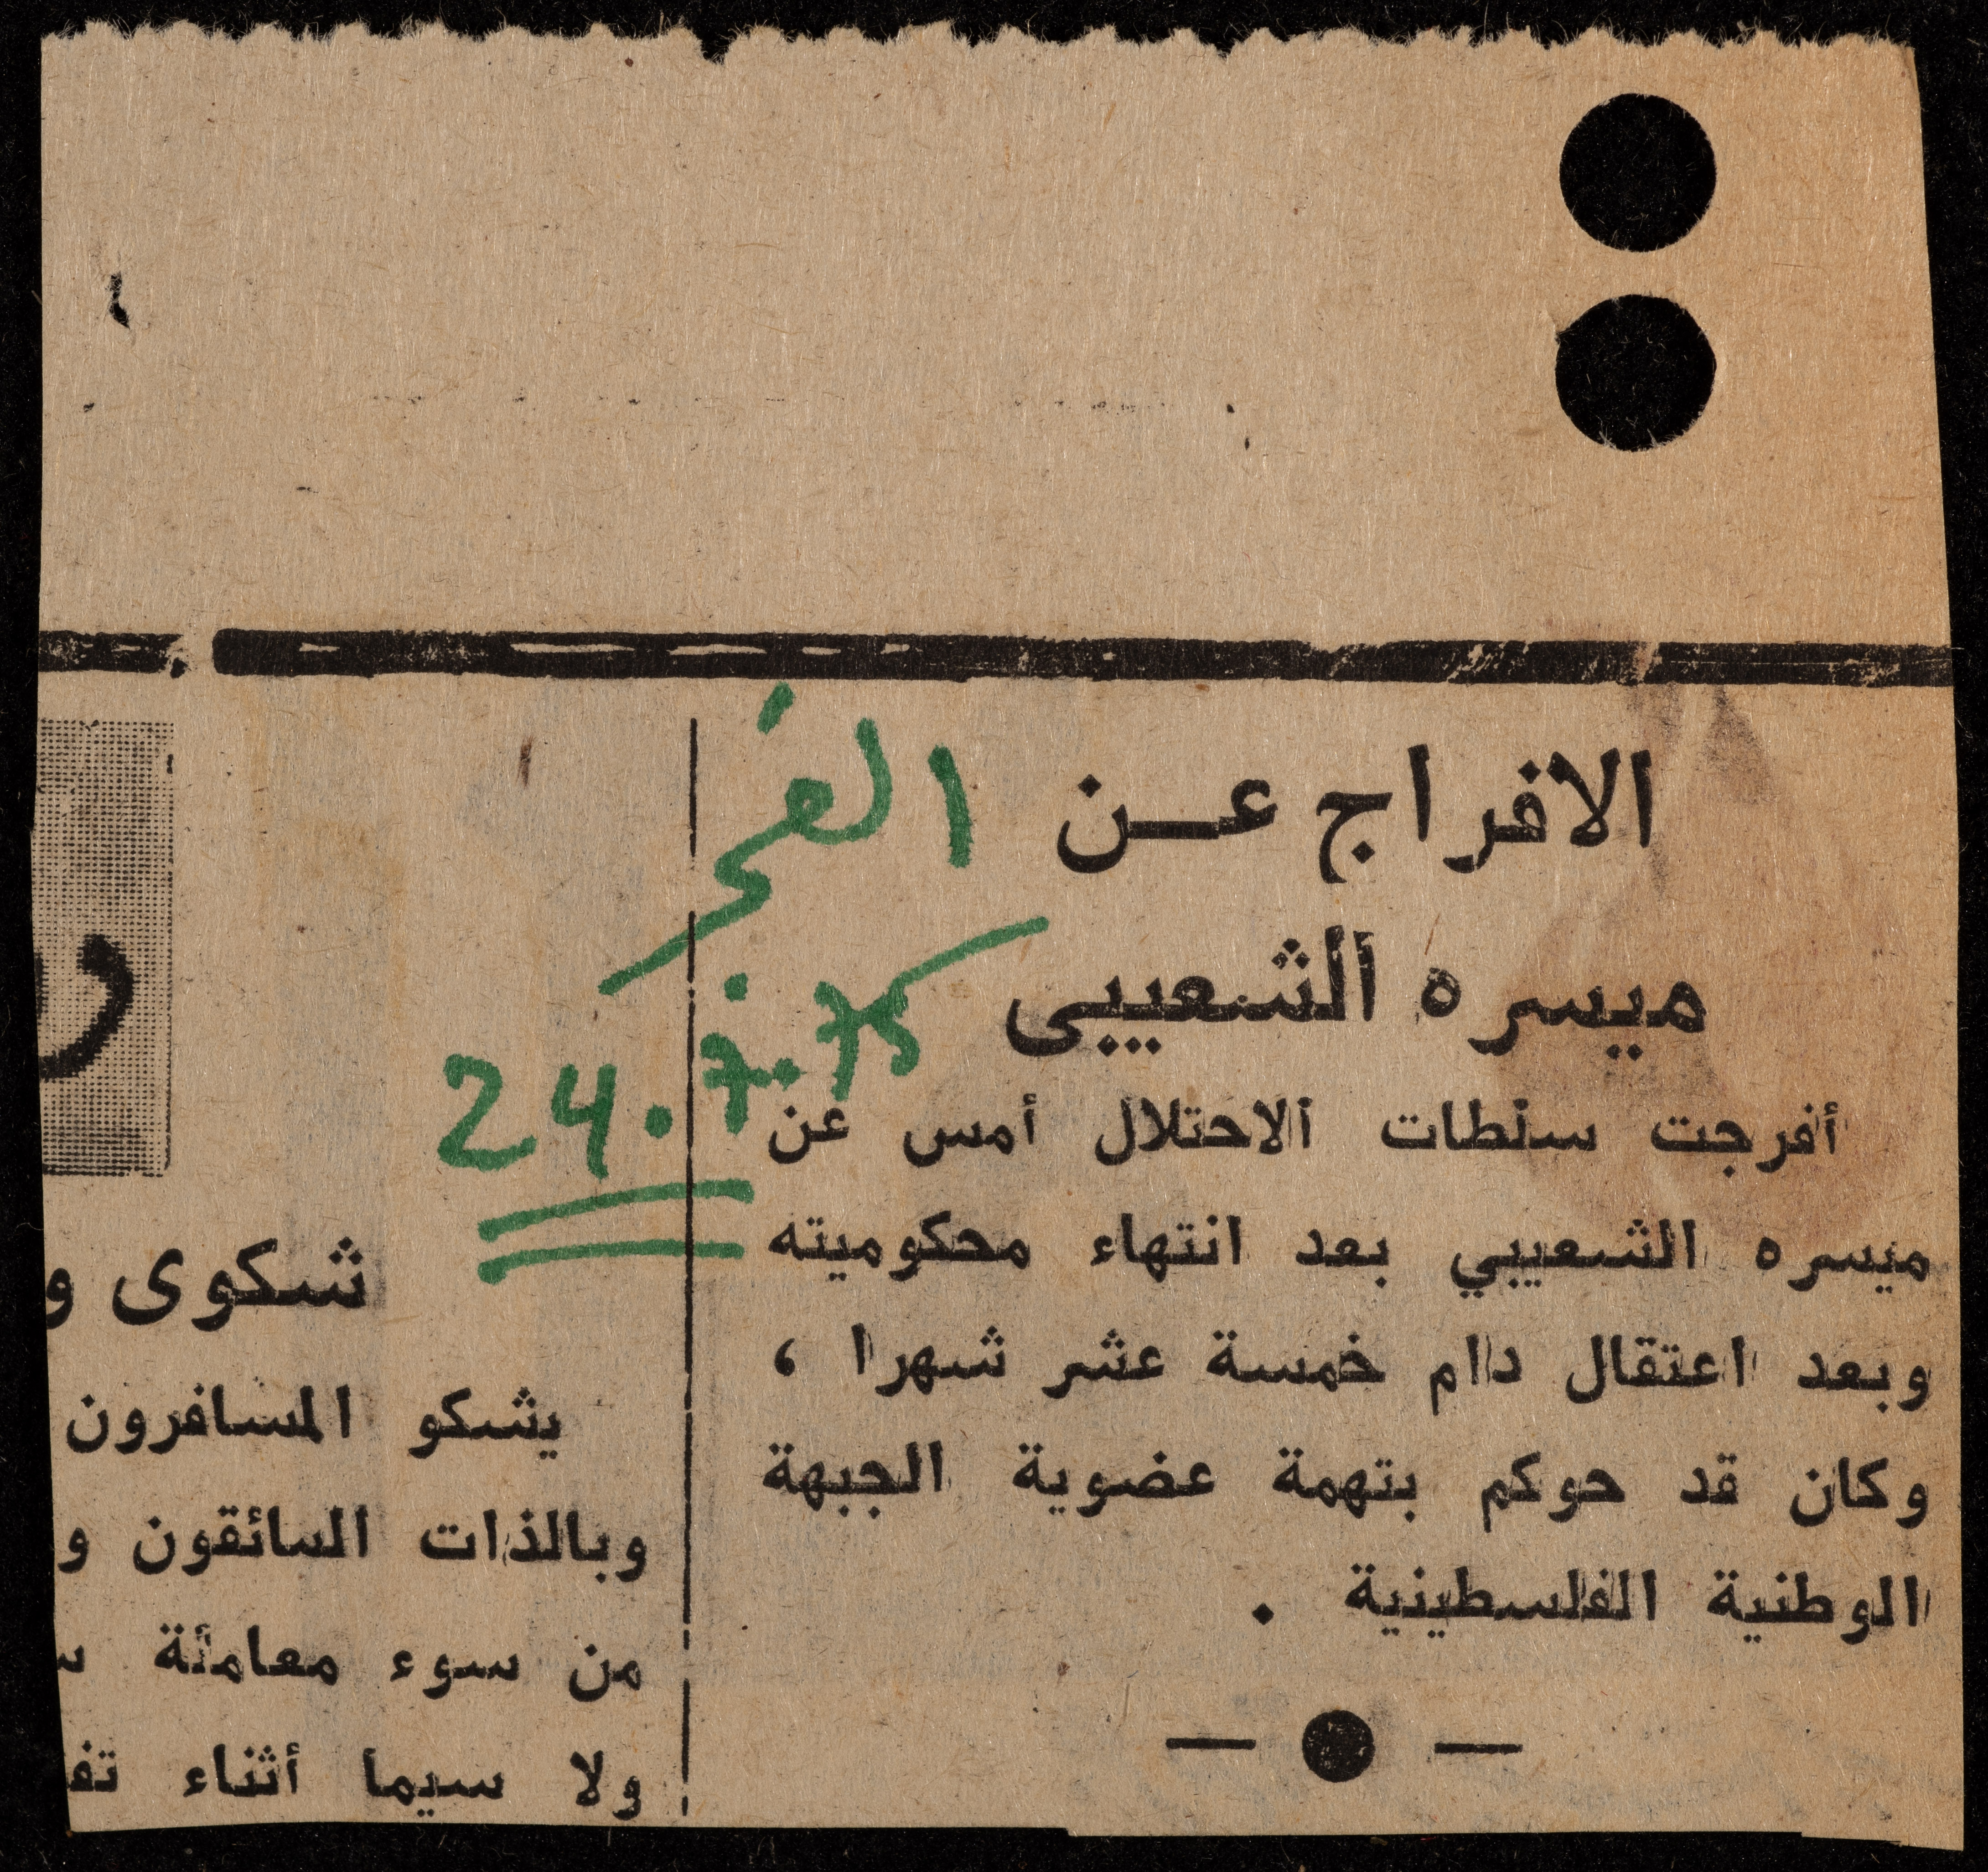 الافراج عـــن
ميسره الشعيبى
أفرجت سلطات الاحتلال أمس عن
ميسره الشعيبي بعد انتهاء محكوميته
وبعد اعتقال دام خمسة عشر شهرا ،
وكان قد حوكم بتهمة عضوية الجبهة
الوطنية الفلسطينية .
الفجر
24.7.75
شكوى و
يشكو المسافرون
وبالذات السائقون و
من سوء معاملة س
ولا سيما أثناء تف